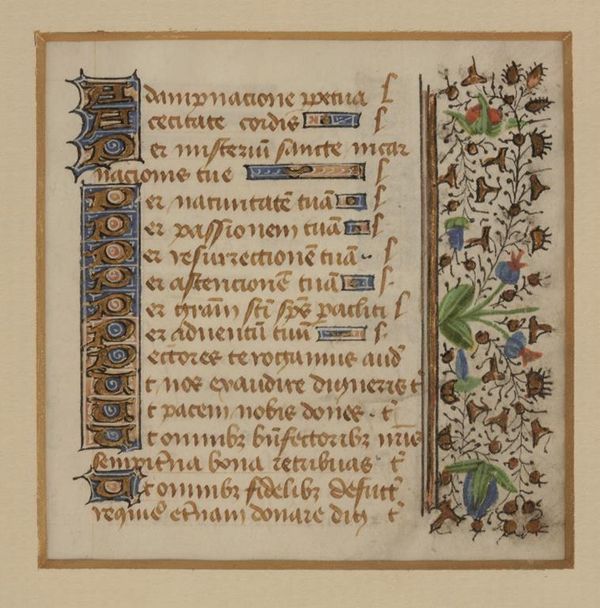 A dampnacione ppetua l
A cecitate cordis l
Per misteriu sancte incar
nacionis tue l
Per natiuitatē tuā l
Per passionem tuā l
Per resurrectionē tuā l
Per astencionē tuā l
Per gram sti sps pacliti l
Per aduentū tuū l
Pectores te rogamus aud
Ut nos exaudire digneris t
Ut pacem nobis dones t
Ut omnibz bnfectoribz nris
sempitna bona retribuas t
Ut omnibz fidelibz defuct
requie etnam donare dig t